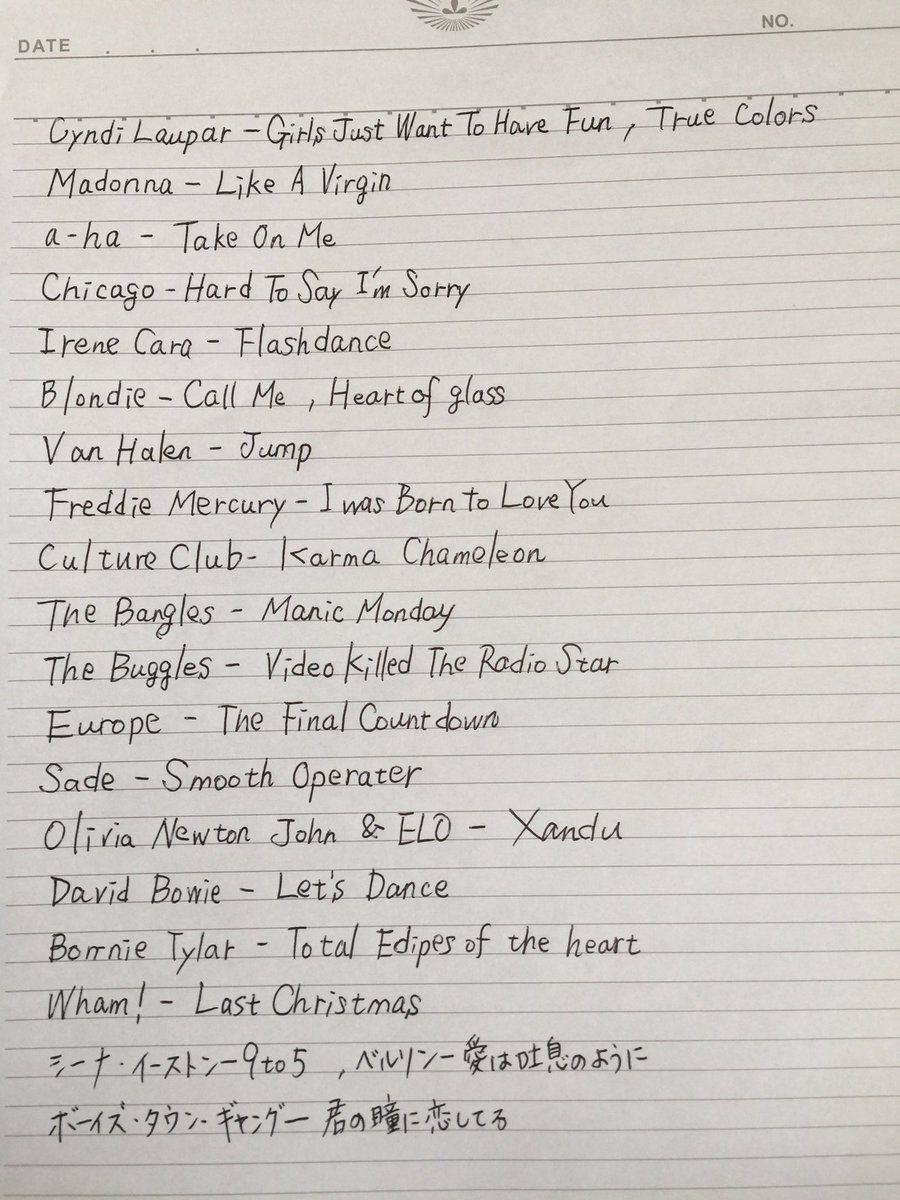 DATE . . . NO.
Cyndi Laupar - Girls Just Want To Have Fun , True Colors
Madonna - Like A Virgin
a-ha - Take On Me
Chicago - Hard To Say I'm Sorry
Irene Cara - Flashdance
Blondie - Call Me , Heart of glass
Van Halen - Jump
Freddie Mercury - I was Born to Love You
Culture Club - Karma Chameleon
The Bangles - Manic Monday
The Buggles - Video Killed The Radio Star
Europe - The Final Countdown
Sade - Smooth Operater
Olivia Newton John & ELO - Xandu
David Bowie - Let's Dance
Bonnie Tylar - Total Edipes of the heart
Wham! - Last Christmas
シーナ・イーストン-9to5 , ベルリン-愛は吐息のように
ボーイズ・タウン・ギャング-君の瞳に恋してる